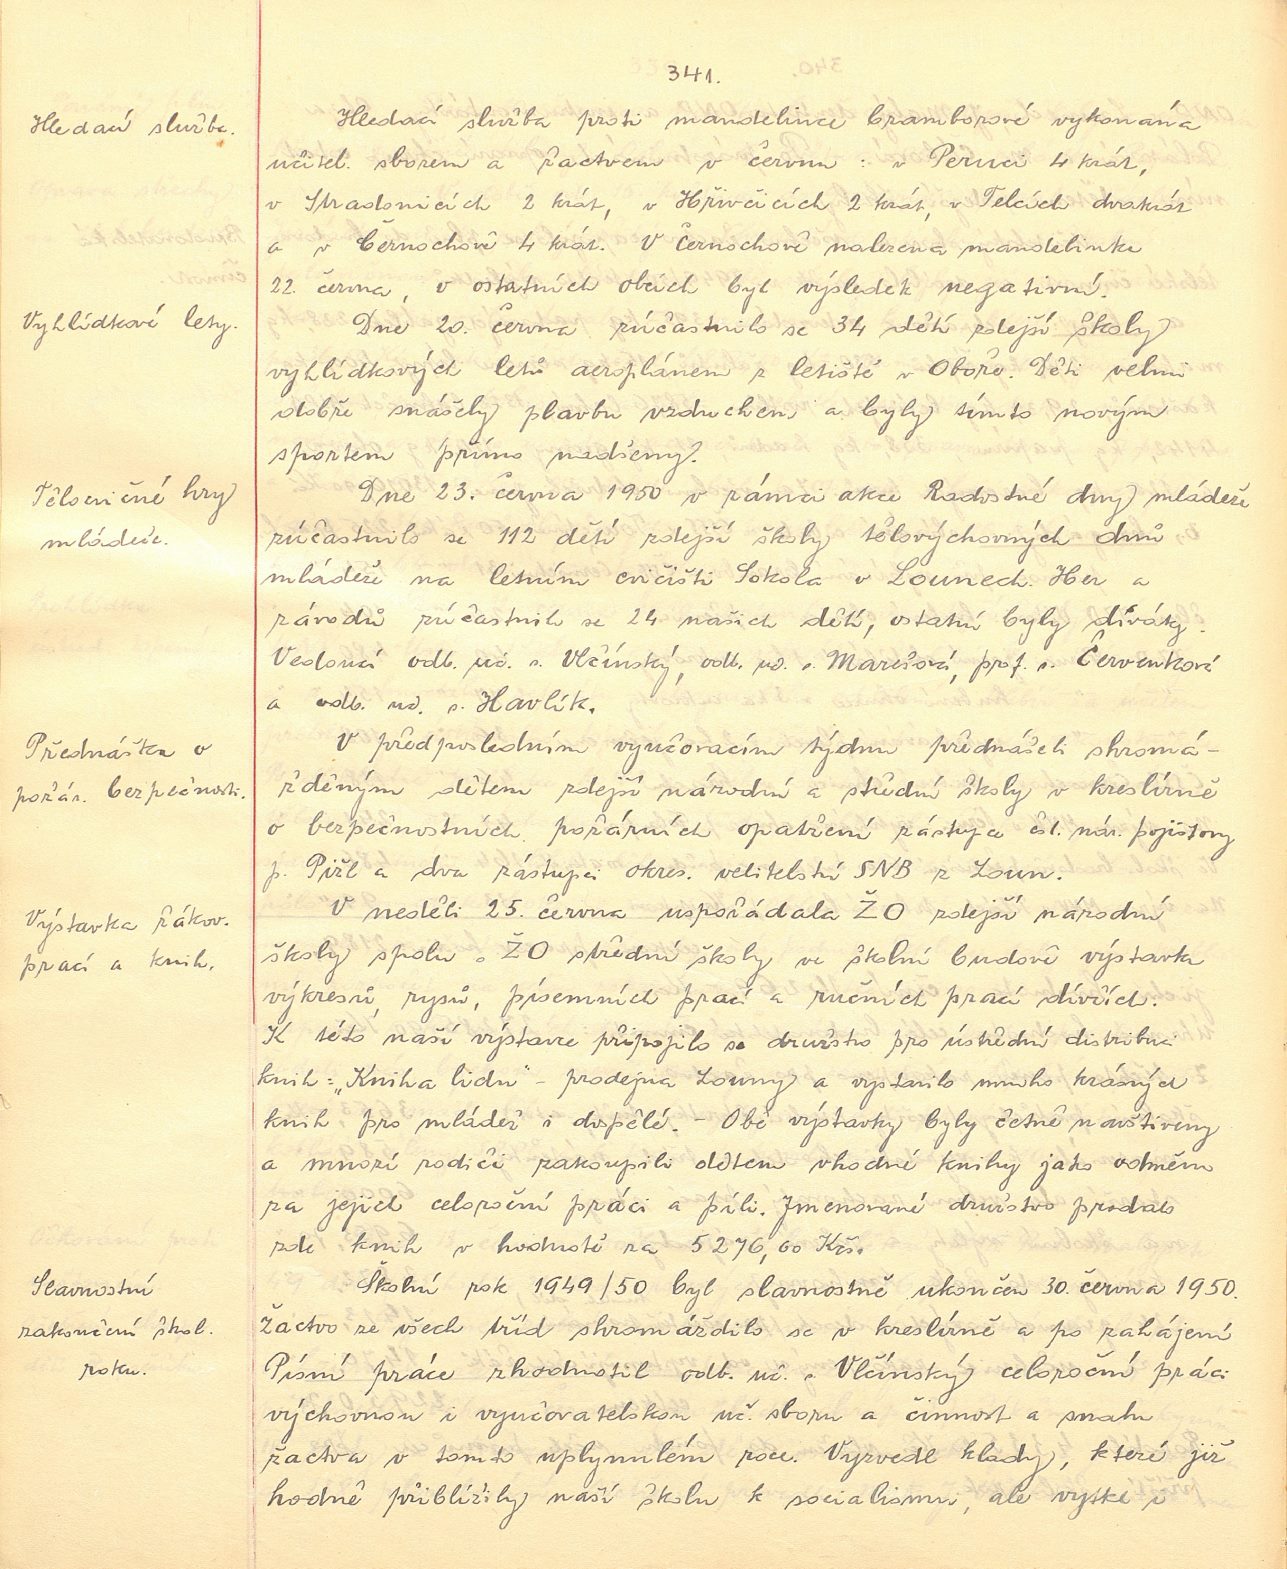 341.
Hledací služba.
Hledací služba proti mandelince bramborové vykonána
učitel. sborem a žactvem v červnu : v Peruci 4 krát,
v Stradonicích 2 krát, v Hřivčicích 2 krát, v Telcích dvakrát
a v Černochově 4 krát. V Černochově nalezena mandelinka
22. června, v ostatních obcích byl výsledek negativní.
Vyhlídkové lety.
Dne 20. června zúčastnilo se 34 dětí zdejší školy
vyhlídkových letů aeroplánem z letiště v Oboře. Děti velmi
dobře snášely plavbu vzduchem a byly tímto novým
sportem přímo nadšeny.
Tělocvičné hry
mládeže.
Dne 23. června 1950 v rámci akce Radostné dny mládeže
zúčastnilo se 112 dětí zdejší školy tělovýchovných dnů
mládeže na letním cvičišti Sokola v Lounech. Her a
závodů zúčastnilo se 24 našich dětí, ostatní byly diváky.
Vedoucí odb. uč. s. Vlčínský, odb. uč. s. Marešová, prof. s. Červenková
a odb. uč. s. Havlík.
Přednáška o
požár. bezpečnosti.
V předposledním vyučovacím týdnu přednášeli shromá-
žděným dětem zdejší národní a střední školy v kreslírně
o bezpečnostních požárních opatření zástupce čsl. nár. pojišťovny
p. Pižl a dva zástupci okres. velitelství SNB z Loun.
Výstavka žákov.
prací a knih.
V neděli 25. června uspořádala ŽO zdejší národní
školy spolu s ŽO střední školy ve školní budově výstavku
výkresů, rysů, písemních prací a ručních prací dívčích.
K této naší výstavce připojilo se družstvo pro ústřední distribuci
knih: "Kniha lidu" - prodejna Louny a vystavilo mnoho krásných
knih pro mládež i dospělé. - Obě výstavky byly četně navštíveny
a mnozí rodiče zakoupili dětem vhodné knihy jako odměnu
za jejich celoroční práci a píli. Jmenované družstvo prodalo
zde knih v hodnotě za 5276,60 Kčs.
Slavnostní
zakončení škol.
roku.
Školní rok 1949/50 byl slavnostně ukončen 30. června 1950.
Žactvo ze všech tříd shromáždilo se v kreslírně a po zahájení
Písní práce zhodnotil odb. uč. s. Vlčínský celoroční práci
výchovnou i vyučovatelskou uč. sboru a činnost a snahu
žactva v tomto uplynulém roce. Vyzvedl klady, které již
hodně přiblížily naši školu k socialismu, ale vytkl i